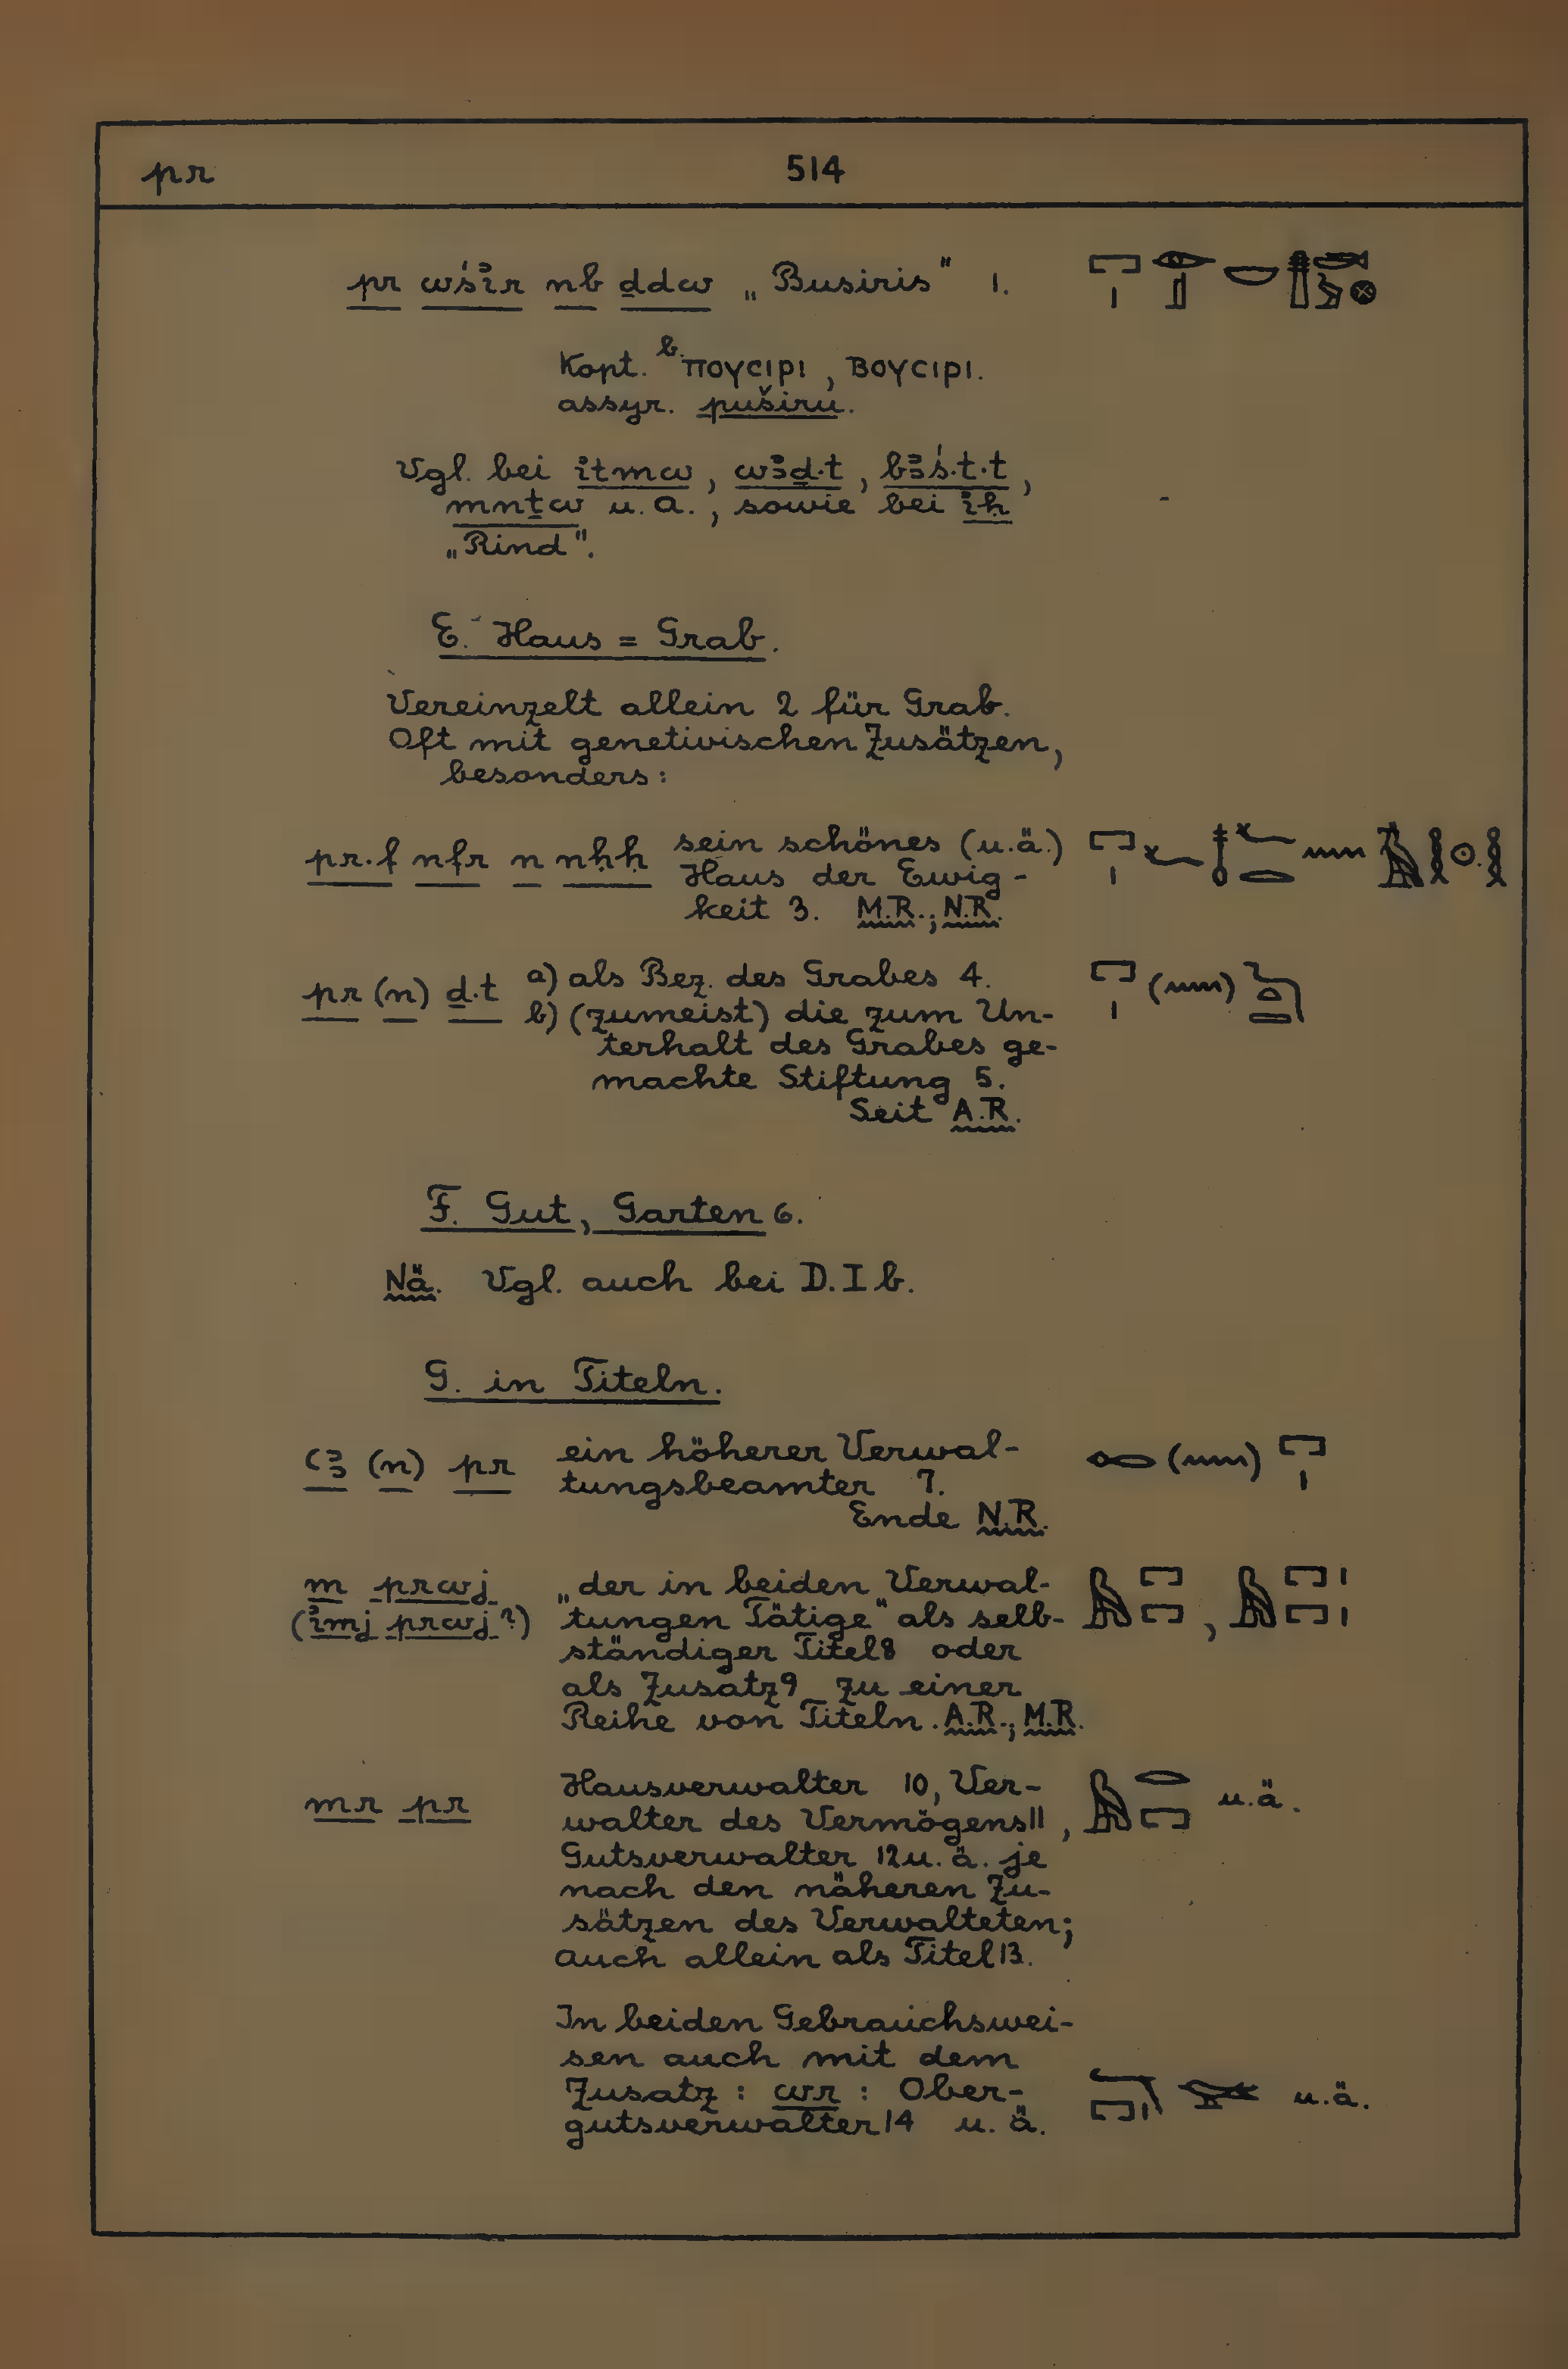 pr 514
pr wśı͗r nb ḏdw „Busiris" 1.
Kopt. b. ⲡⲟⲩⲥⲓⲣⲓ, ⲃⲟⲩⲥⲓⲣⲓ.
assyr. puširu.
Vgl. bei ı͗tmw, wꜣḏ·t, bꜣś·t·t,
mnṯw u.a., sowie bei ı͗ḥ
„Rind".
E. Haus = Grab.
Vereinzelt allein 2 für Grab.
Oft mit genetivischen Zusätzen,
besonders:
pr·f nfr n nḥḥ sein schönes (u.ä.)
Haus der Ewig-
keit 3. M.R.; N.R.
pr (n) ḏ·t a) als Bez. des Grabes 4.
b) (zumeist) die zum Un-
terhalt des Grabes ge-
machte Stiftung 5.
Seit A.R.
F. Gut, Garten 6.
Nä. Vgl. auch bei D. I b.
G. in Titeln.
ꜥꜣ (n) pr ein höherer Verwal-
tungsbeamter 7.
Ende N.R.
m prwj „der in beiden Verwal-
(ı͗mj prwj?) tungen Tätige" als selb-
ständiger Titel 8 oder
als Zusatz 9 zu einer
Reihe von Titeln. A.R.; M.R.
mr pr Hausverwalter 10, Ver- u.ä.
walter des Vermögens 11,
Gutsverwalter 12 u.ä. je
nach den näheren Zu-
sätzen des Verwalteten;
auch allein als Titel 13.
In beiden Gebrauchswei-
sen auch mit dem
Zusatz: wr: Ober- u.ä.
gutsverwalter 14 u.ä.